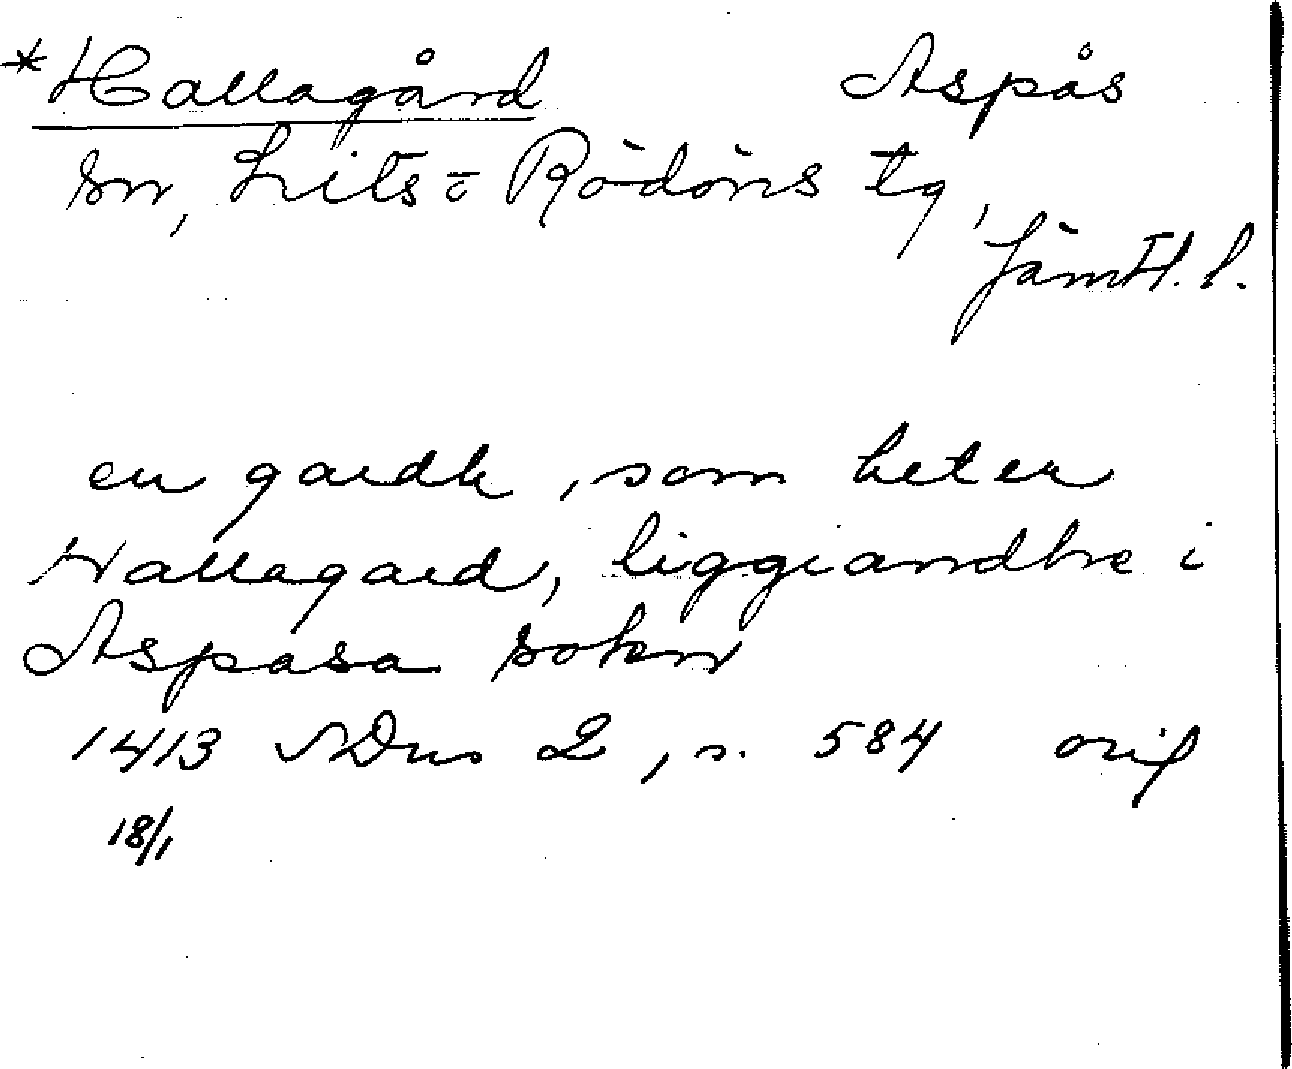 *Hallagård Aspås
sn, Lits o Rödöns tg,
Jämtl. l.
en gardh, som heter
Hallagard, liggiandhe i
Aspasa sokn
1413 SDns 2, s. 584 orig
18/1